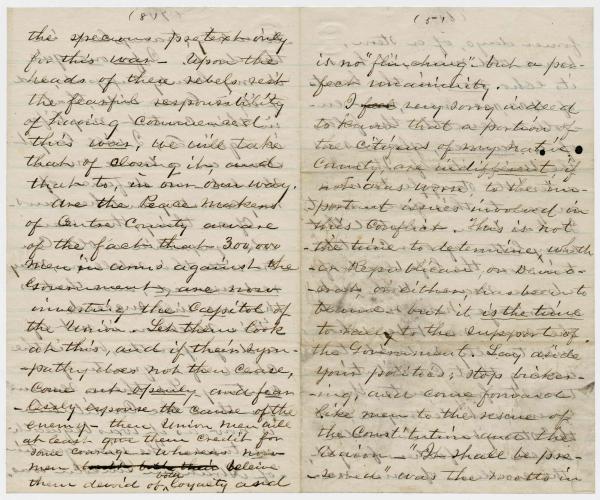 (8)
the specious pretext only
for this war – Upon the
heads of these rebels rest
the fearful responsibility
of having commenced
this war, we will take
that of closing it, and
that to, in our own way.
Are the Peace Makers
of Centre County aware
of the fact that 300,000
men in arms against the
Government, are now
investing the Capitol of
the Union. Let them look
at this, and if their sym-
pathy does not then cease,
come out openly and fear-
lessly espouse the cause of the
enemy – then Union men will
at least give them credit for
some courage – whereas now
men believe
both
them devoid of loyalty and
(5)
is no "flinching" but a per-
fect unanimity.
I feel very sorry indeed
to learn that a portion of
the citizens of my native
County, are indifferent if
not worse to the im-
portant issues involved in
this conflict. This is not
the time to determine, wheth-
er Republican, or Demo-
crat or either, has been to
blame – but it is the time
to rally to the support of
the Government. Lay aside
your politics; stop bicker-
ing, and come forward
like men to the rescue of
the Constitution and the
Union – "It shall be pre-
served" was the motto in